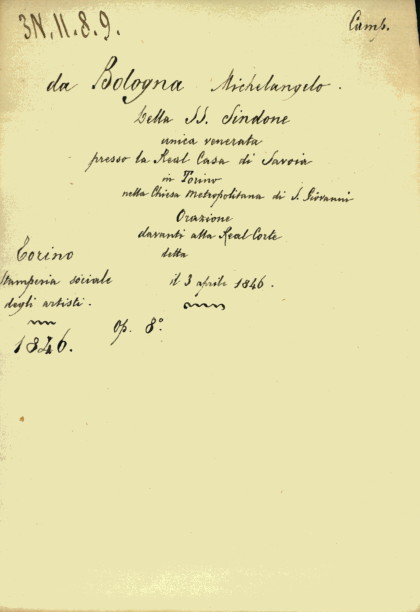 3N.II.8.9.
Camb.
da Bologna Michelangelo.
Della SS. Sindone
unica venerata
presso la Real Casa di Savoia
in Torino
nella Chiesa Metropolitana di S. Giovanni
Orazione
davanti alla Real Corte
detta
il 3 aprile 1846.
Torino
Stamperia sociale
degli artisti.
1846.
Op. 8º.